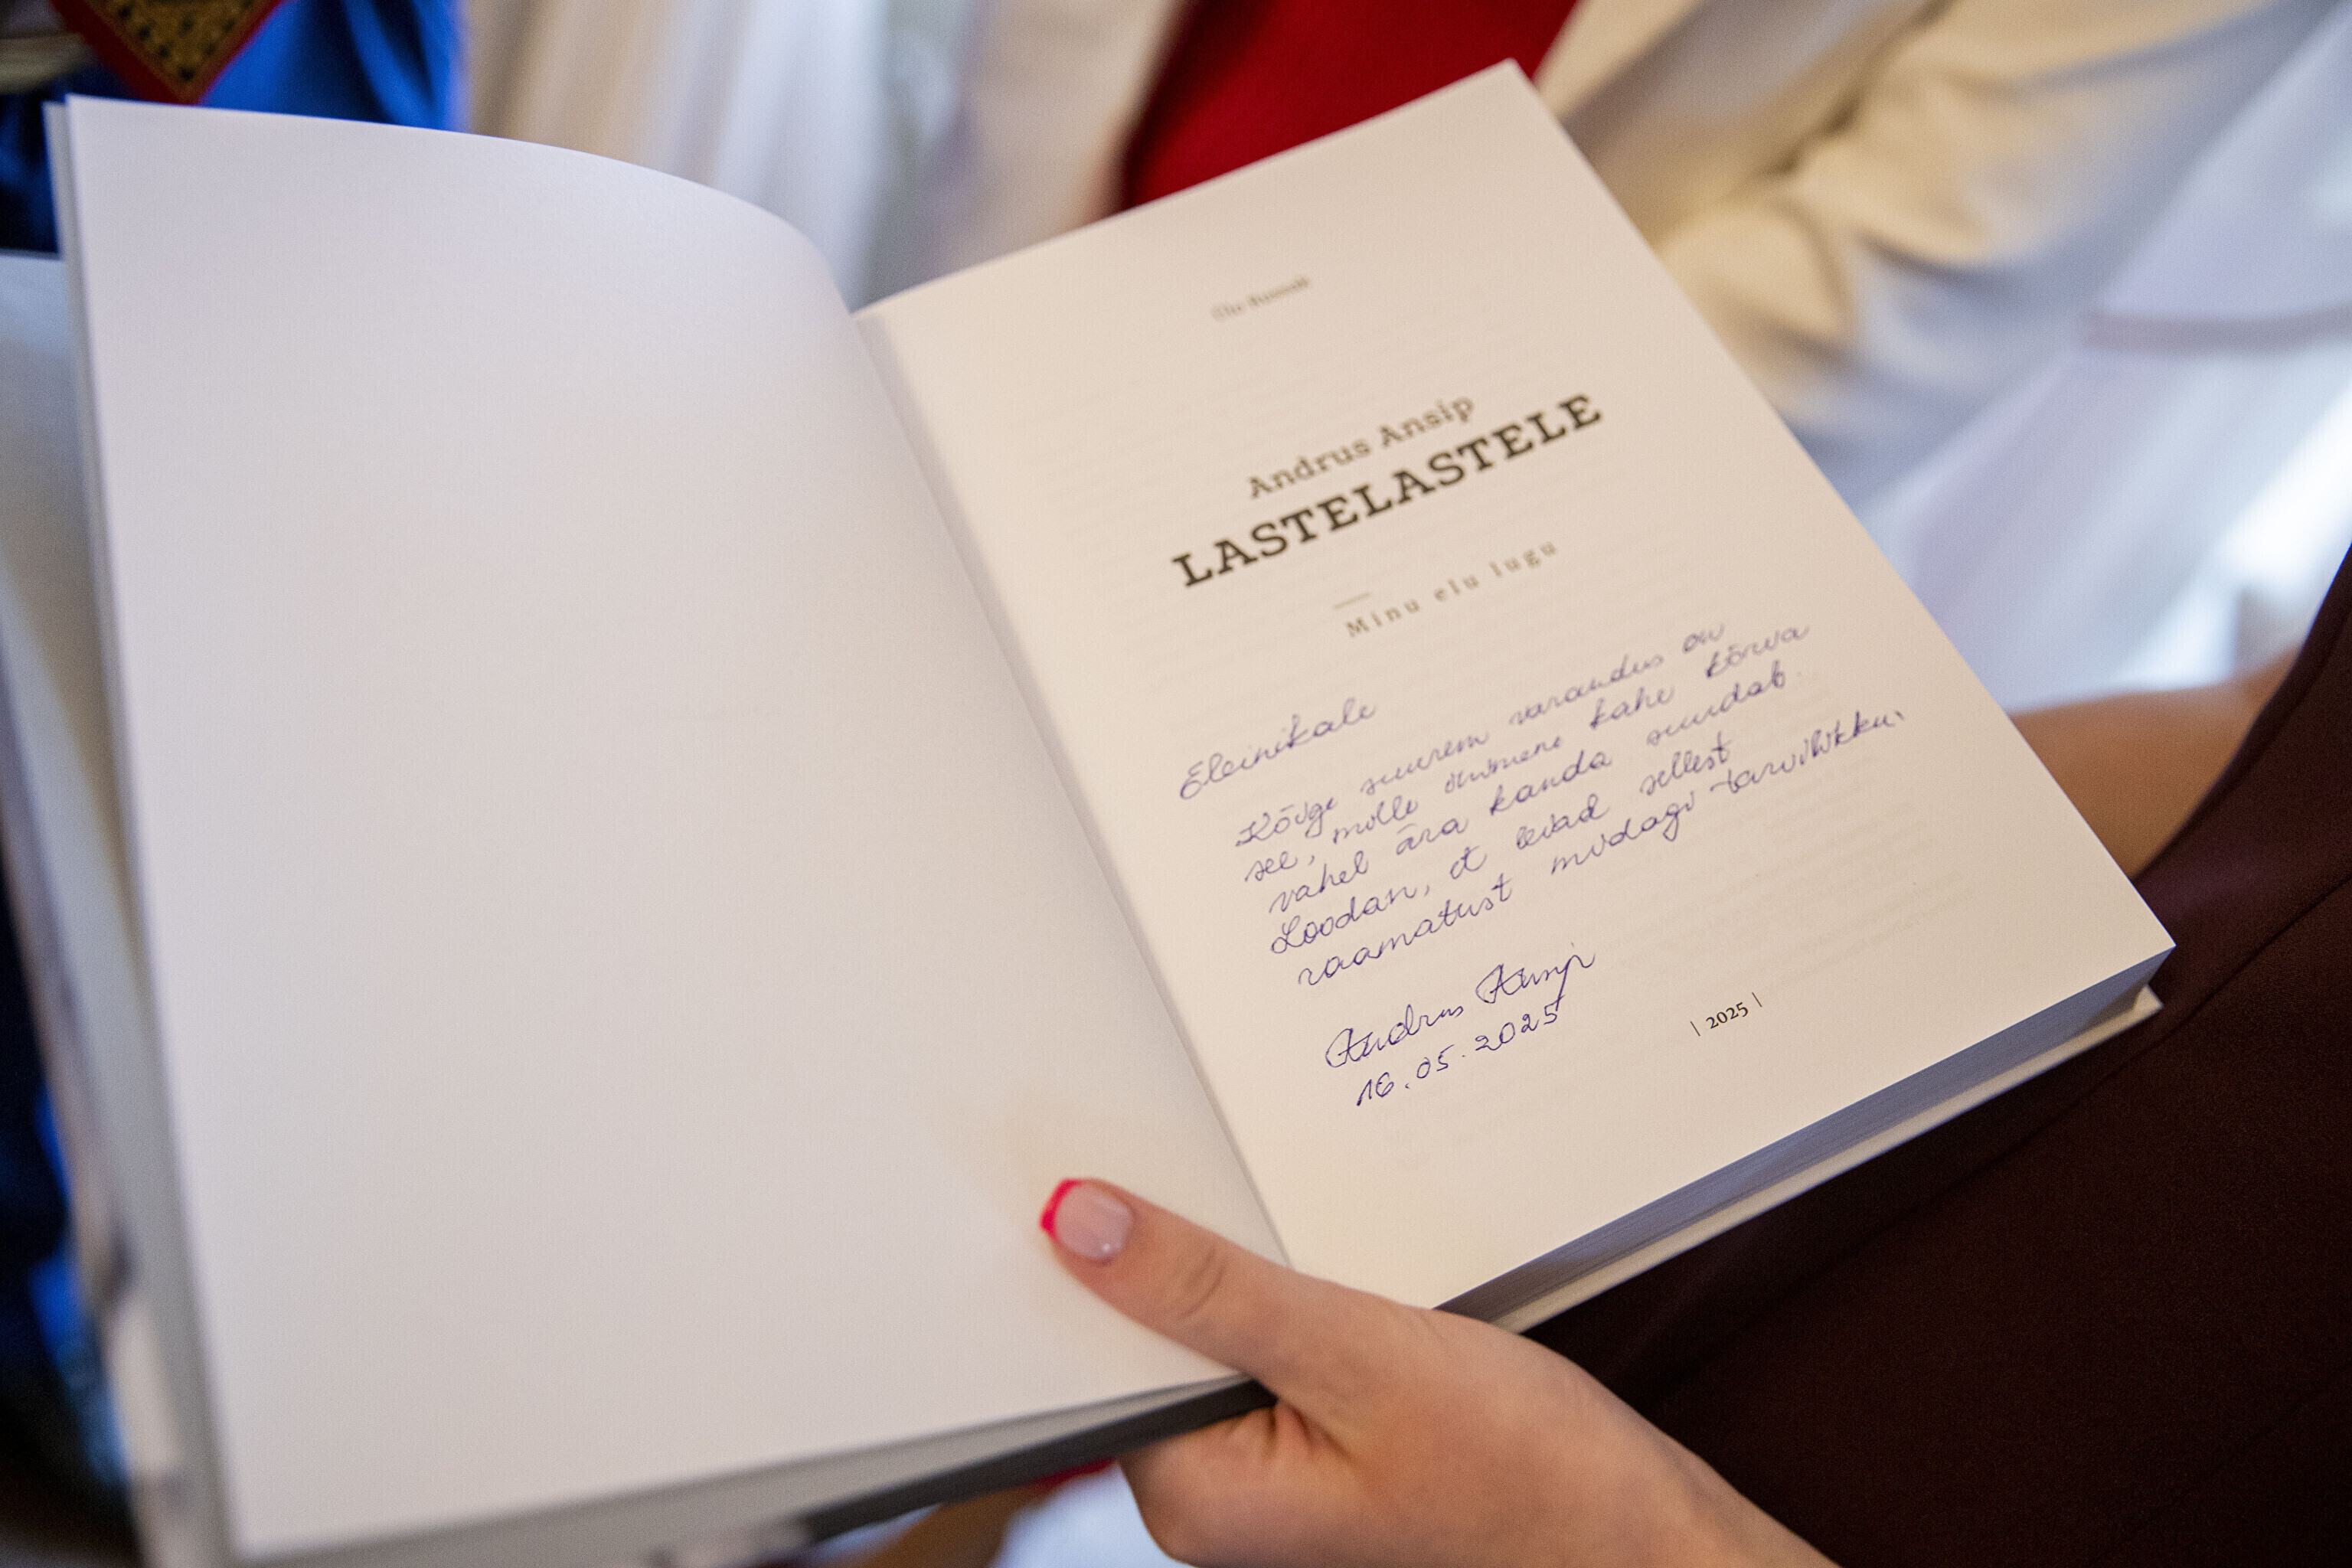 Andrus Ansip
LASTELASTELE
Minu elu lugu
Eleinikale
Kõige suurem varandus on
see, mille inimene kahe kõrva
vahel ära kanda suudab.
Loodan, et leiad sellest
raamatust midagi tarvilikku.
Andrus Ansip
16.05.2025
| 2025 |